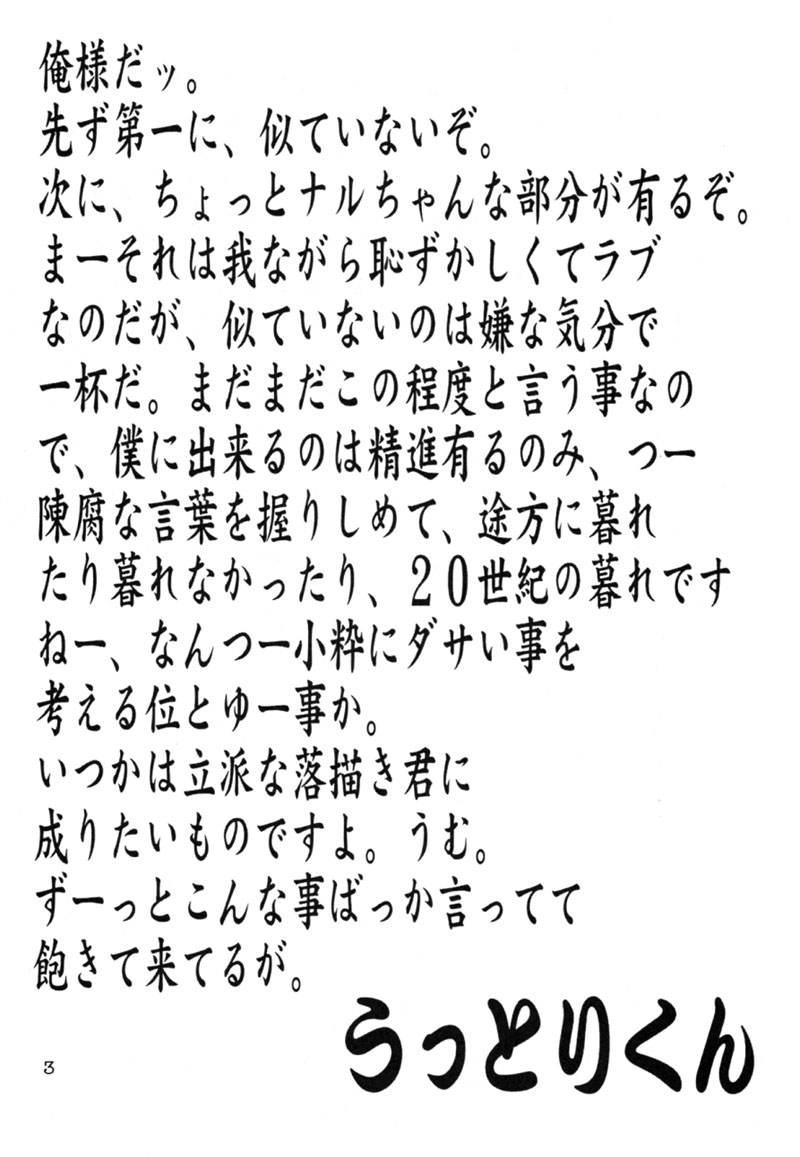 俺様だッ。
先ず第一に、似ていないぞ。
次に、ちょっとナルちゃんな部分が有るぞ。
まーそれは我ながら恥ずかしくてラブ
なのだが、似ていないのは嫌な気分で
一杯だ。まだまだこの程度と言う事なの
で、僕に出来るのは精進有るのみ、つー
陳腐な言葉を握りしめて、途方に暮れ
たり暮れなかったり、20世紀の暮れです
ねー、なんつー小粋にダサい事を
考える位とゆー事か。
いつかは立派な落描き君に
成りたいものですよ。うむ。
ずーっとこんな事ばっか言ってて
飽きて来てるが。
うっとりくん
3